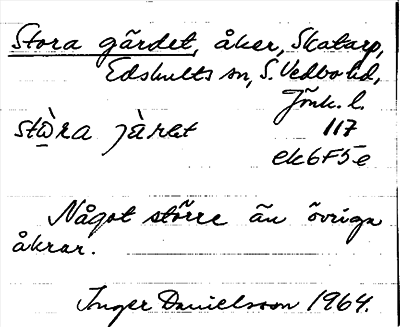 Stora gärdet, åker, Skatarp,
Edshults sn, S. Vedbo hd,
Jönk. l.
stὼra jàret 117
ek6F5e
Något större än övriga
åkrar.
Inger Danielsson 1964.